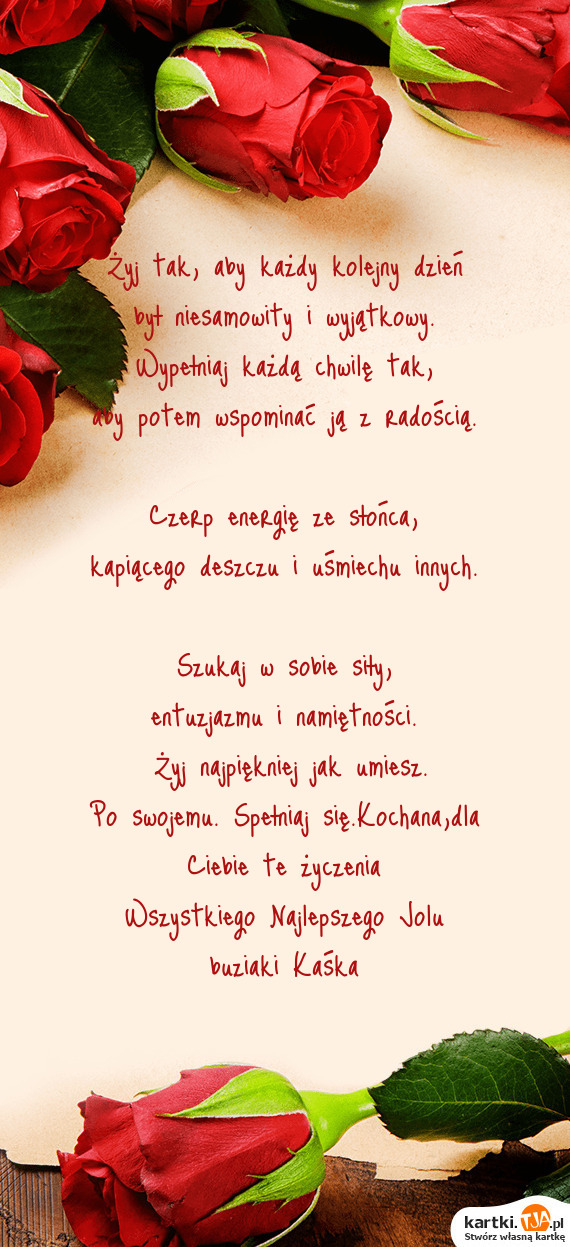 Żyj tak, aby każdy kolejny dzień
był niesamowity i wyjątkowy.
Wypełniaj każdą chwilę tak,
aby potem wspominać ją z radością.
Czerp energię ze słońca,
kapiącego deszczu i uśmiechu innych.
Szukaj w sobie siły,
entuzjazmu i namiętności.
Żyj najpiękniej jak umiesz.
Po swojemu. Spełniaj się.Kochana,dla
Ciebie te życzenia
Wszystkiego Najlepszego Jolu
buziaki Kaśka
kartki.TJA.pl
Stwórz własną kartkę